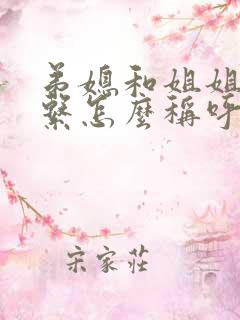 弟媳和姐姐
繫怎麼稱呼
宋家莊